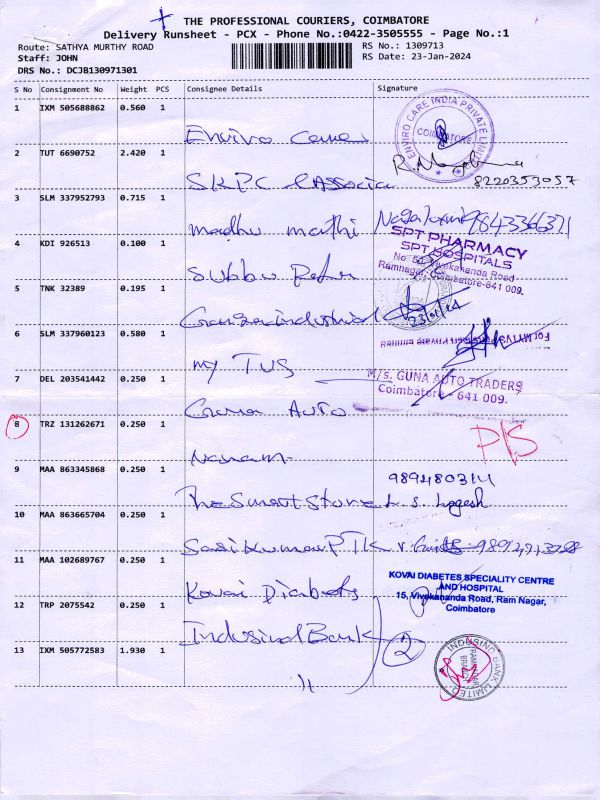 THE PROFESSIONAL COURIERS, COIMBATORE
Delivery Runsheet - PCX - Phone No.:0422-3505555 - Page No.:1
Route: SATHYA MURTHY ROAD
RS No.: 1309713
Staff: JOHN
RS Date: 23-Jan-2024
DRS No.: DCJB130971301
S No Consignment No Weight PCS Consignee Details Signature
1 IXM 505688862 0.560 1
ENVIRO CARE INDIA PRIVATE LIMITED
COIMBATORE
Enviro Care
2 TUT 6690752 2.420 1
8220353057
SKPC & Associa
3 SLM 337952793 0.715 1
madhu mathi Nagalaxmi 9843366371
4 KDI 926513 0.100 1
SPT PHARMACY
SPT HOSPITALS
Vivekananda Road
Ramnagar, Coimbatore-641 009.
Subbu
5 TNK 32389 0.195 1
23/01/24
Ganga industrial
6 SLM 337960123 0.580 1
For MYTVS Private Limited
my TVS
7 DEL 203541442 0.250 1
M/s. GUNA AUTO TRADERS
Coimbatore - 641 009.
Guna Auto
8 TRZ 131262671 0.250 1
P/S
9 MAA 863345868 0.250 1
The Smart Store
10 MAA 863665704 0.250 1
Sasikumar PTK
11 MAA 102689767 0.250 1
KOVAI DIABETES SPECIALITY CENTRE
AND HOSPITAL
15, Vivekananda Road, Ram Nagar,
Coimbatore
Kovai Diabets
12 TRP 2075542 0.250 1
Indusind Bank
2
13 IXM 505772583 1.930 1
INDUSIND BANK LIMITED
RAMNAGAR
BRANCH